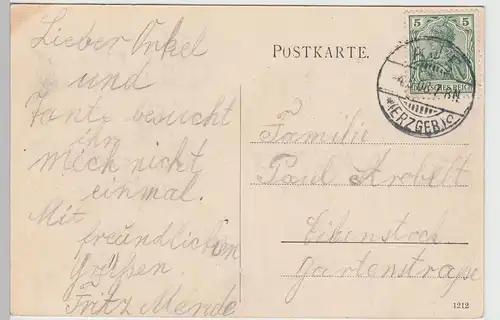 Lieber Onkel
und
Tante besucht
ihr
mich nicht
einmal.
Mit
freundlichen
Grüßen.
Fritz Mende
POSTKARTE.
Familie
Paul
Eibenstock
Gartenstraße
5
DEUTSCHES REICH
(ERZGEB.)
1212